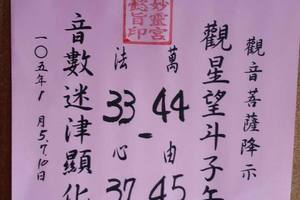 觀音菩薩降示
觀星望斗子午
妙靈宮
懿旨印
萬 44 由 45
-
法 33 心 37
音數迷津顯化
一○五年1月5.7.10日